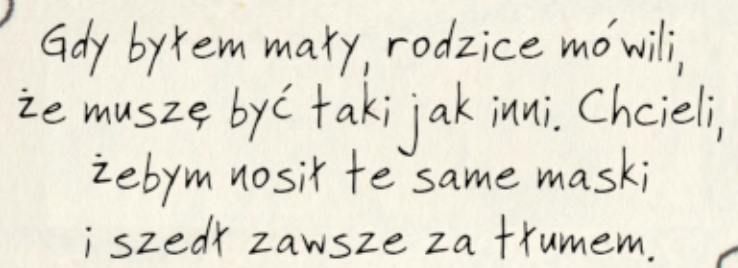 Gdy byłem mały, rodzice mówili,
że muszę być taki jak inni. Chcieli,
żebym nosił te same maski
i szedł zawsze za tłumem.